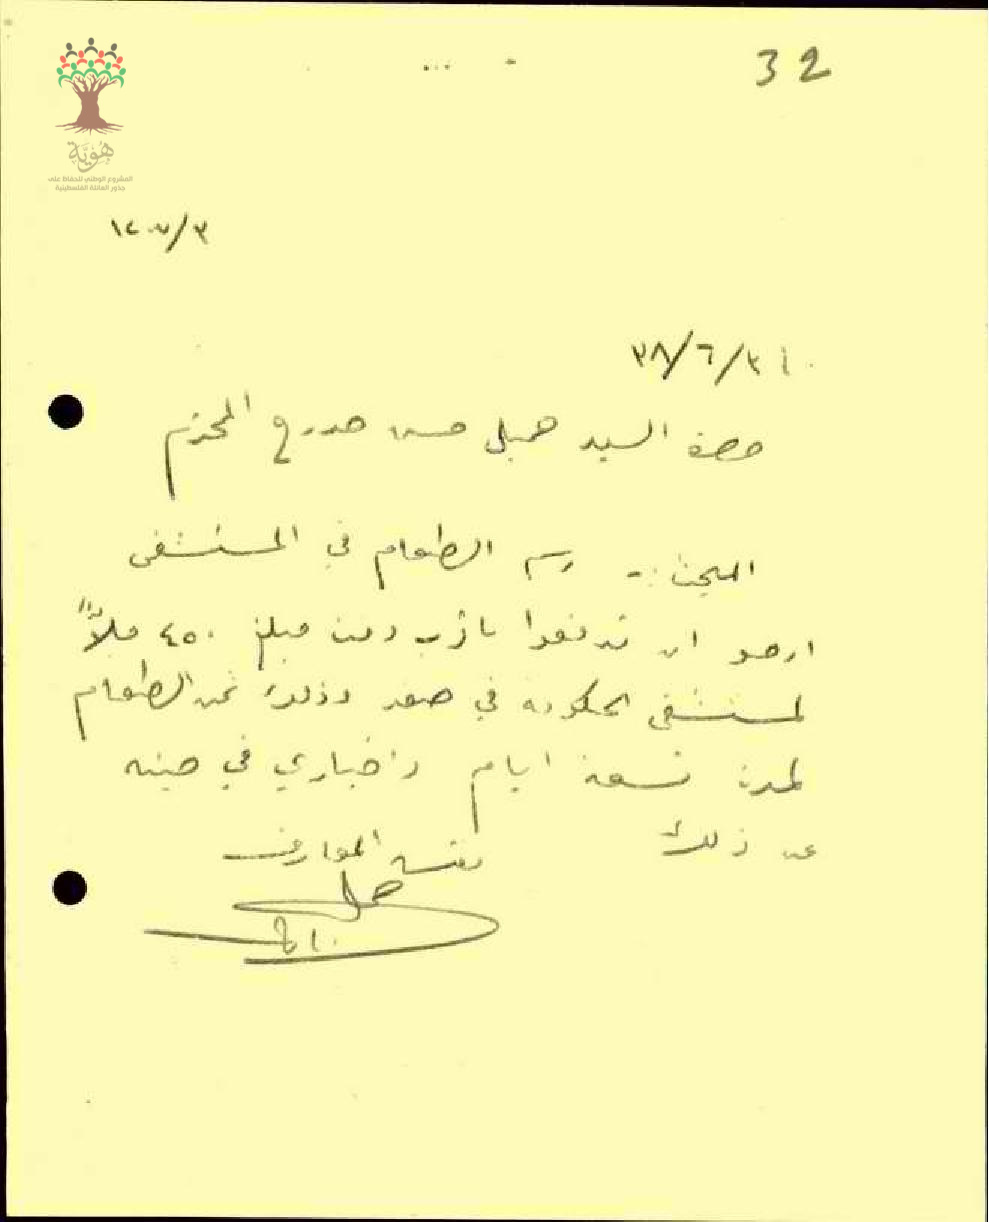 32
هوية
المشروع الوطني للحفاظ على
جذور العائلة الفلسطينية
٣٨/٦/٣
حضرة السيد جميل حسن المحترم
المبحث :- رسم الطعام في المستشفى
ارجو ان تدفعوا باقرب وقت مبلغ ٤٥٠ ملاً
لمستشفى الحكومة في صفد وذلك ثمن الطعام
لمدة تسعة ايام واخباري في حينه
عن ذلك
مفتش المعارف